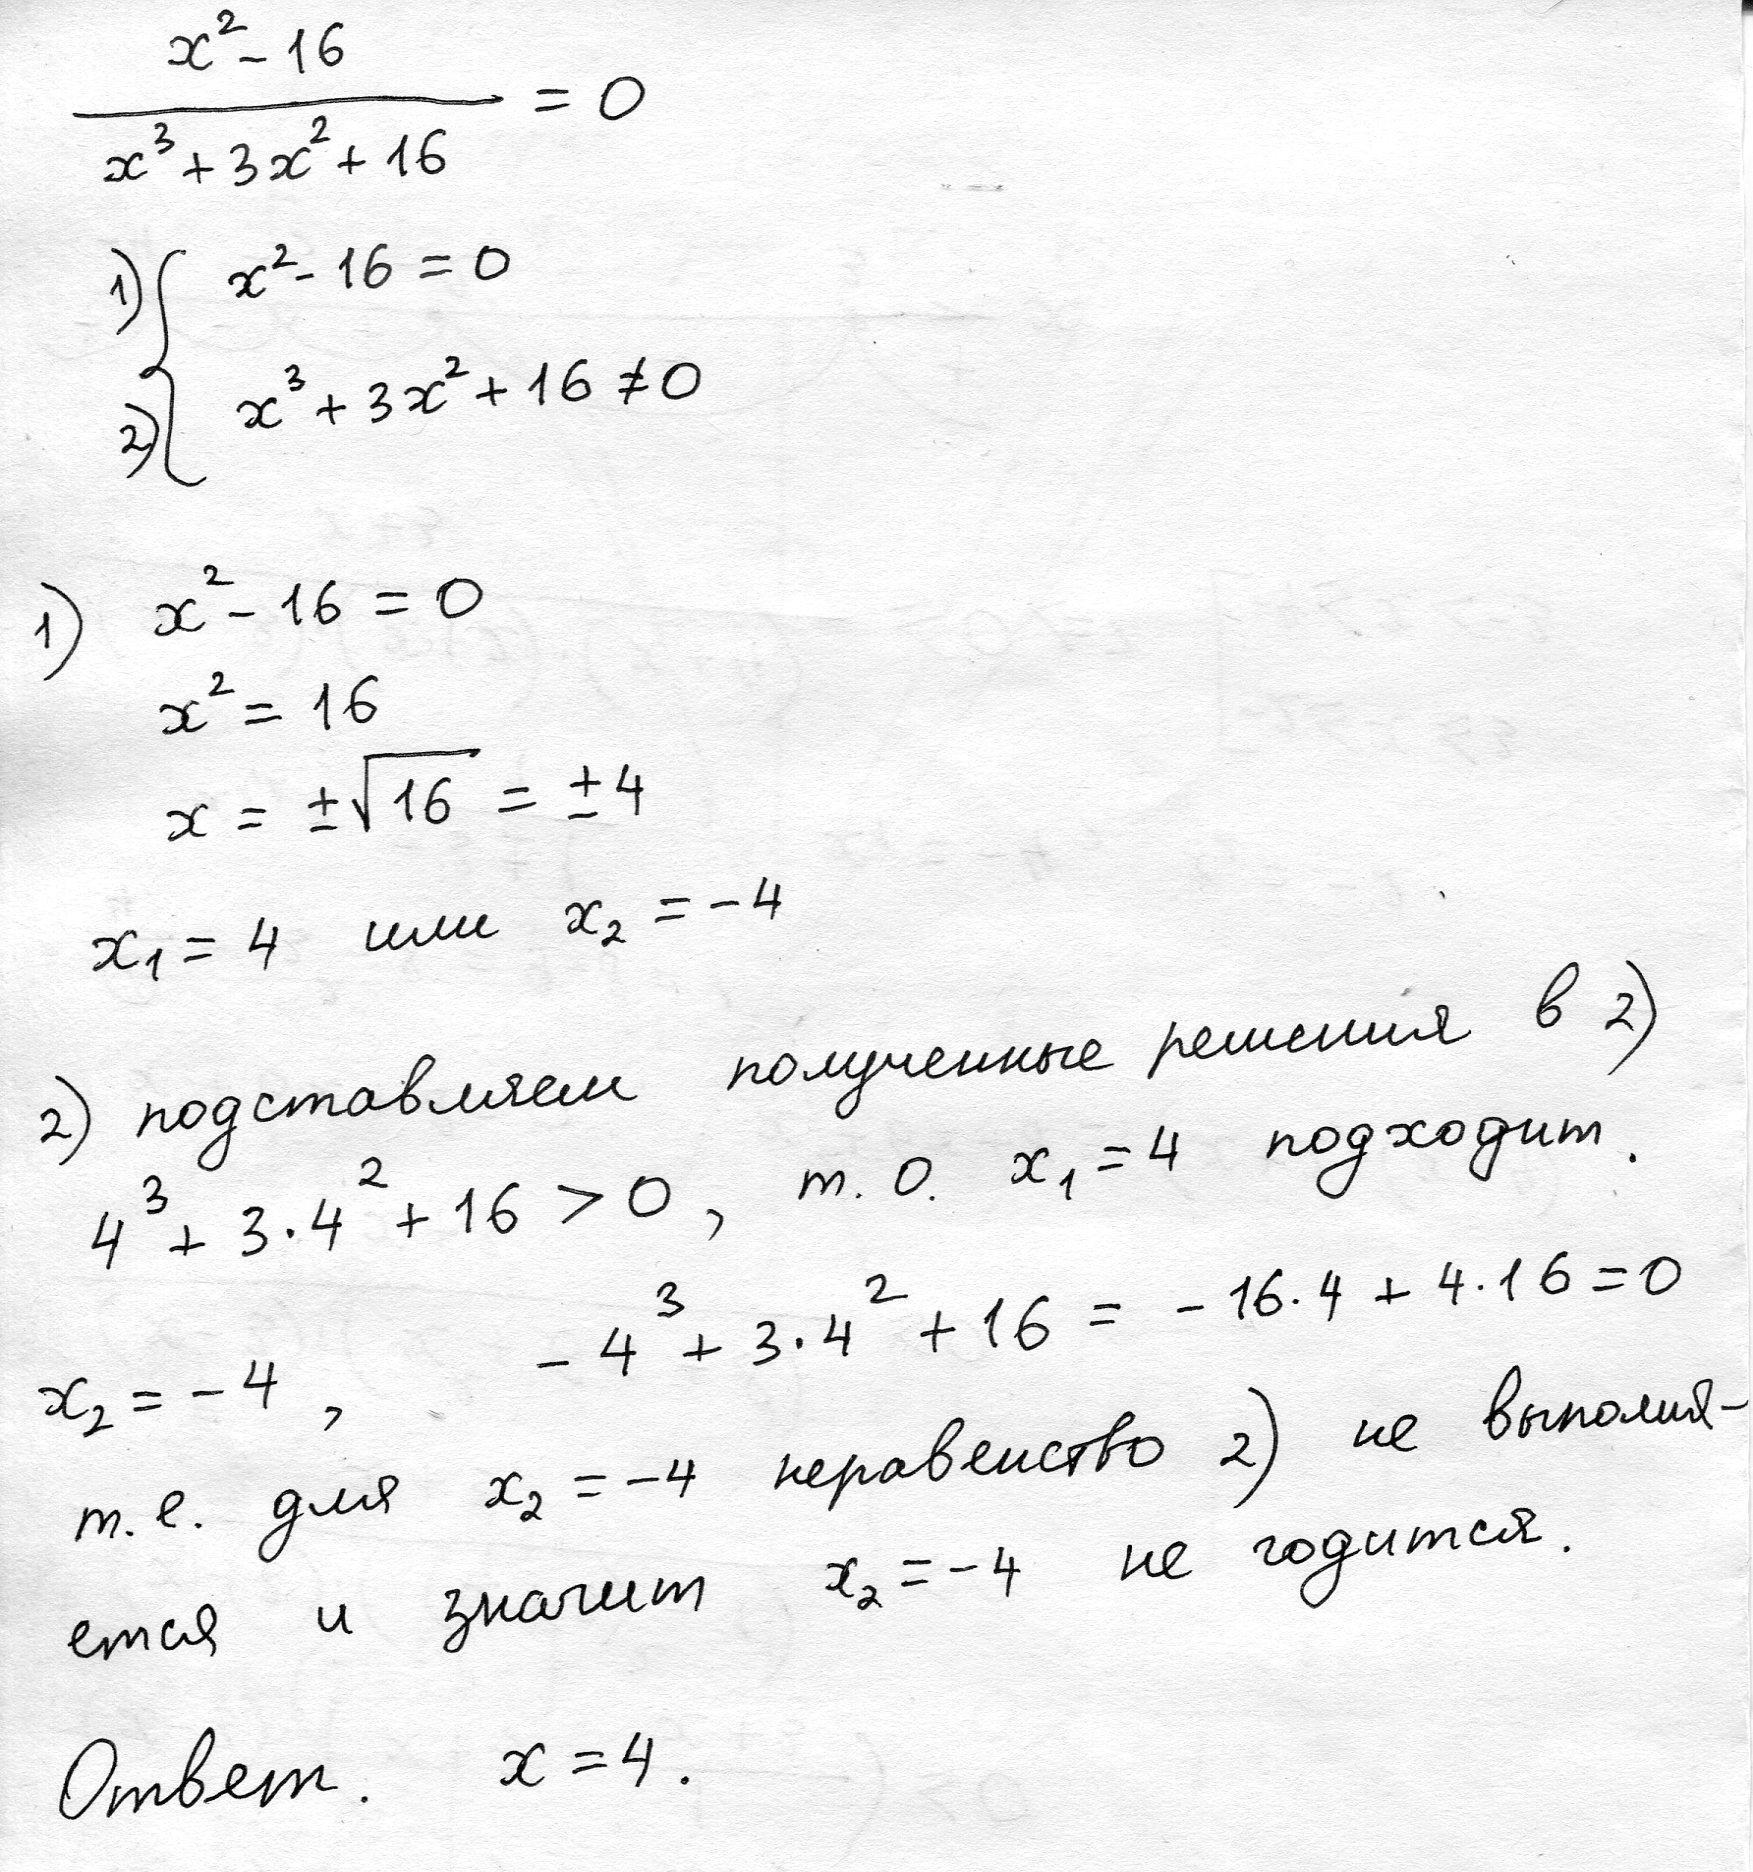 x² - 16
/ x³ + 3x² + 16 = 0
1) { x² - 16 = 0
2) { x³ + 3x² + 16 ≠ 0
1) x² - 16 = 0
x² = 16
x = ±√16 = ±4
x₁ = 4 или x₂ = -4
2) подставляем полученные решения в 2)
4³ + 3·4² + 16 > 0, т.о. x₁ = 4 подходит.
x₂ = -4, -4³ + 3·4² + 16 = -16·4 + 4·16 = 0
т.е. для x₂ = -4 неравенство 2) не выполня-
ется и значит x₂ = -4 не годится.
Ответ. x = 4.